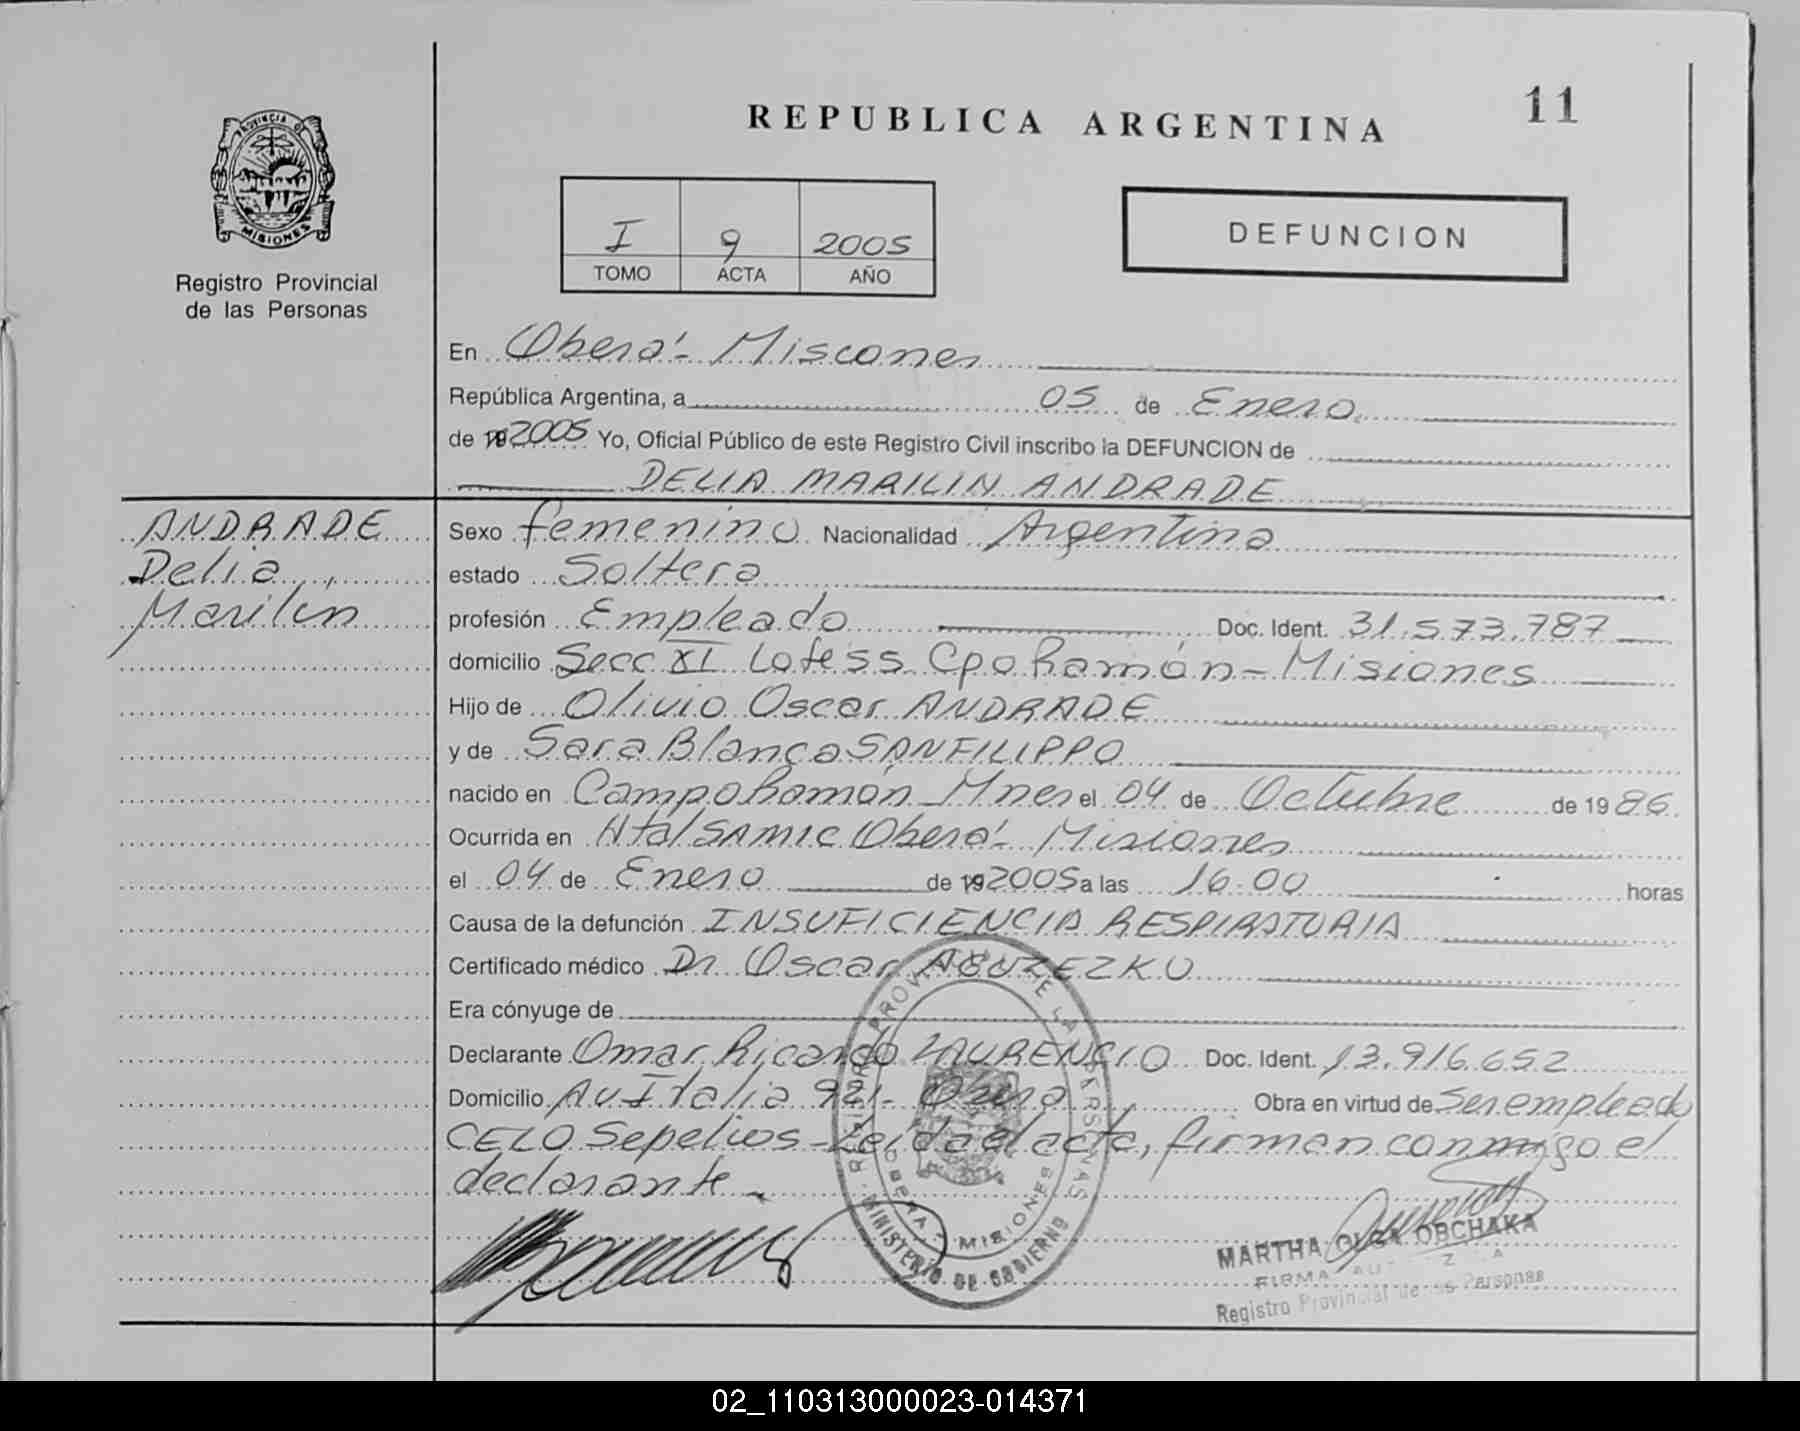 PROVINCIA DE
MISIONES
Registro Provincial
de las Personas
REPUBLICA ARGENTINA
11
I 9 2005
TOMO ACTA AÑO
DEFUNCION
En Oberá - Misiones
República Argentina, a 05 de Enero
de 19 2005 Yo, Oficial Público de este Registro Civil inscribo la DEFUNCION de
DELIA MARILIN ANDRADE
ANDRADE
Delia
Marilin
Sexo femenino Nacionalidad Argentina
estado Soltera
profesión Empleado Doc. Ident. 31.573.787
domicilio Secc XI Lote 55 Cpo Ramón - Misiones
Hijo de Olivio Oscar ANDRADE
y de Sara Blanca SANFILIPPO
nacido en Campo Ramón Mnes el 04 de Octubre de 1986
Ocurrida en Htal SAMIC Oberá - Misiones
el 04 de Enero de 19 2005 a las 16.00 horas
Causa de la defunción INSUFICIENCIA RESPIRATORIA
Certificado médico Dr. Oscar
Era cónyuge de
Declarante Omar Ricardo LAURENCIO Doc. Ident. 13.916.652
Domicilio Av Italia 921 - Oberá Obra en virtud de Ser empleado
CELO Sepelios - Leída el acta, firman conmigo el
declarante -
REGISTRO PROVINCIAL DE LAS PERSONAS
OBERA - MISIONES
MINISTERIO DE GOBIERNO
MARTHA OLGA OBCHAKA
FIRMA AUTORIZADA
Registro Provincial de las Personas
02_110313000023-014371